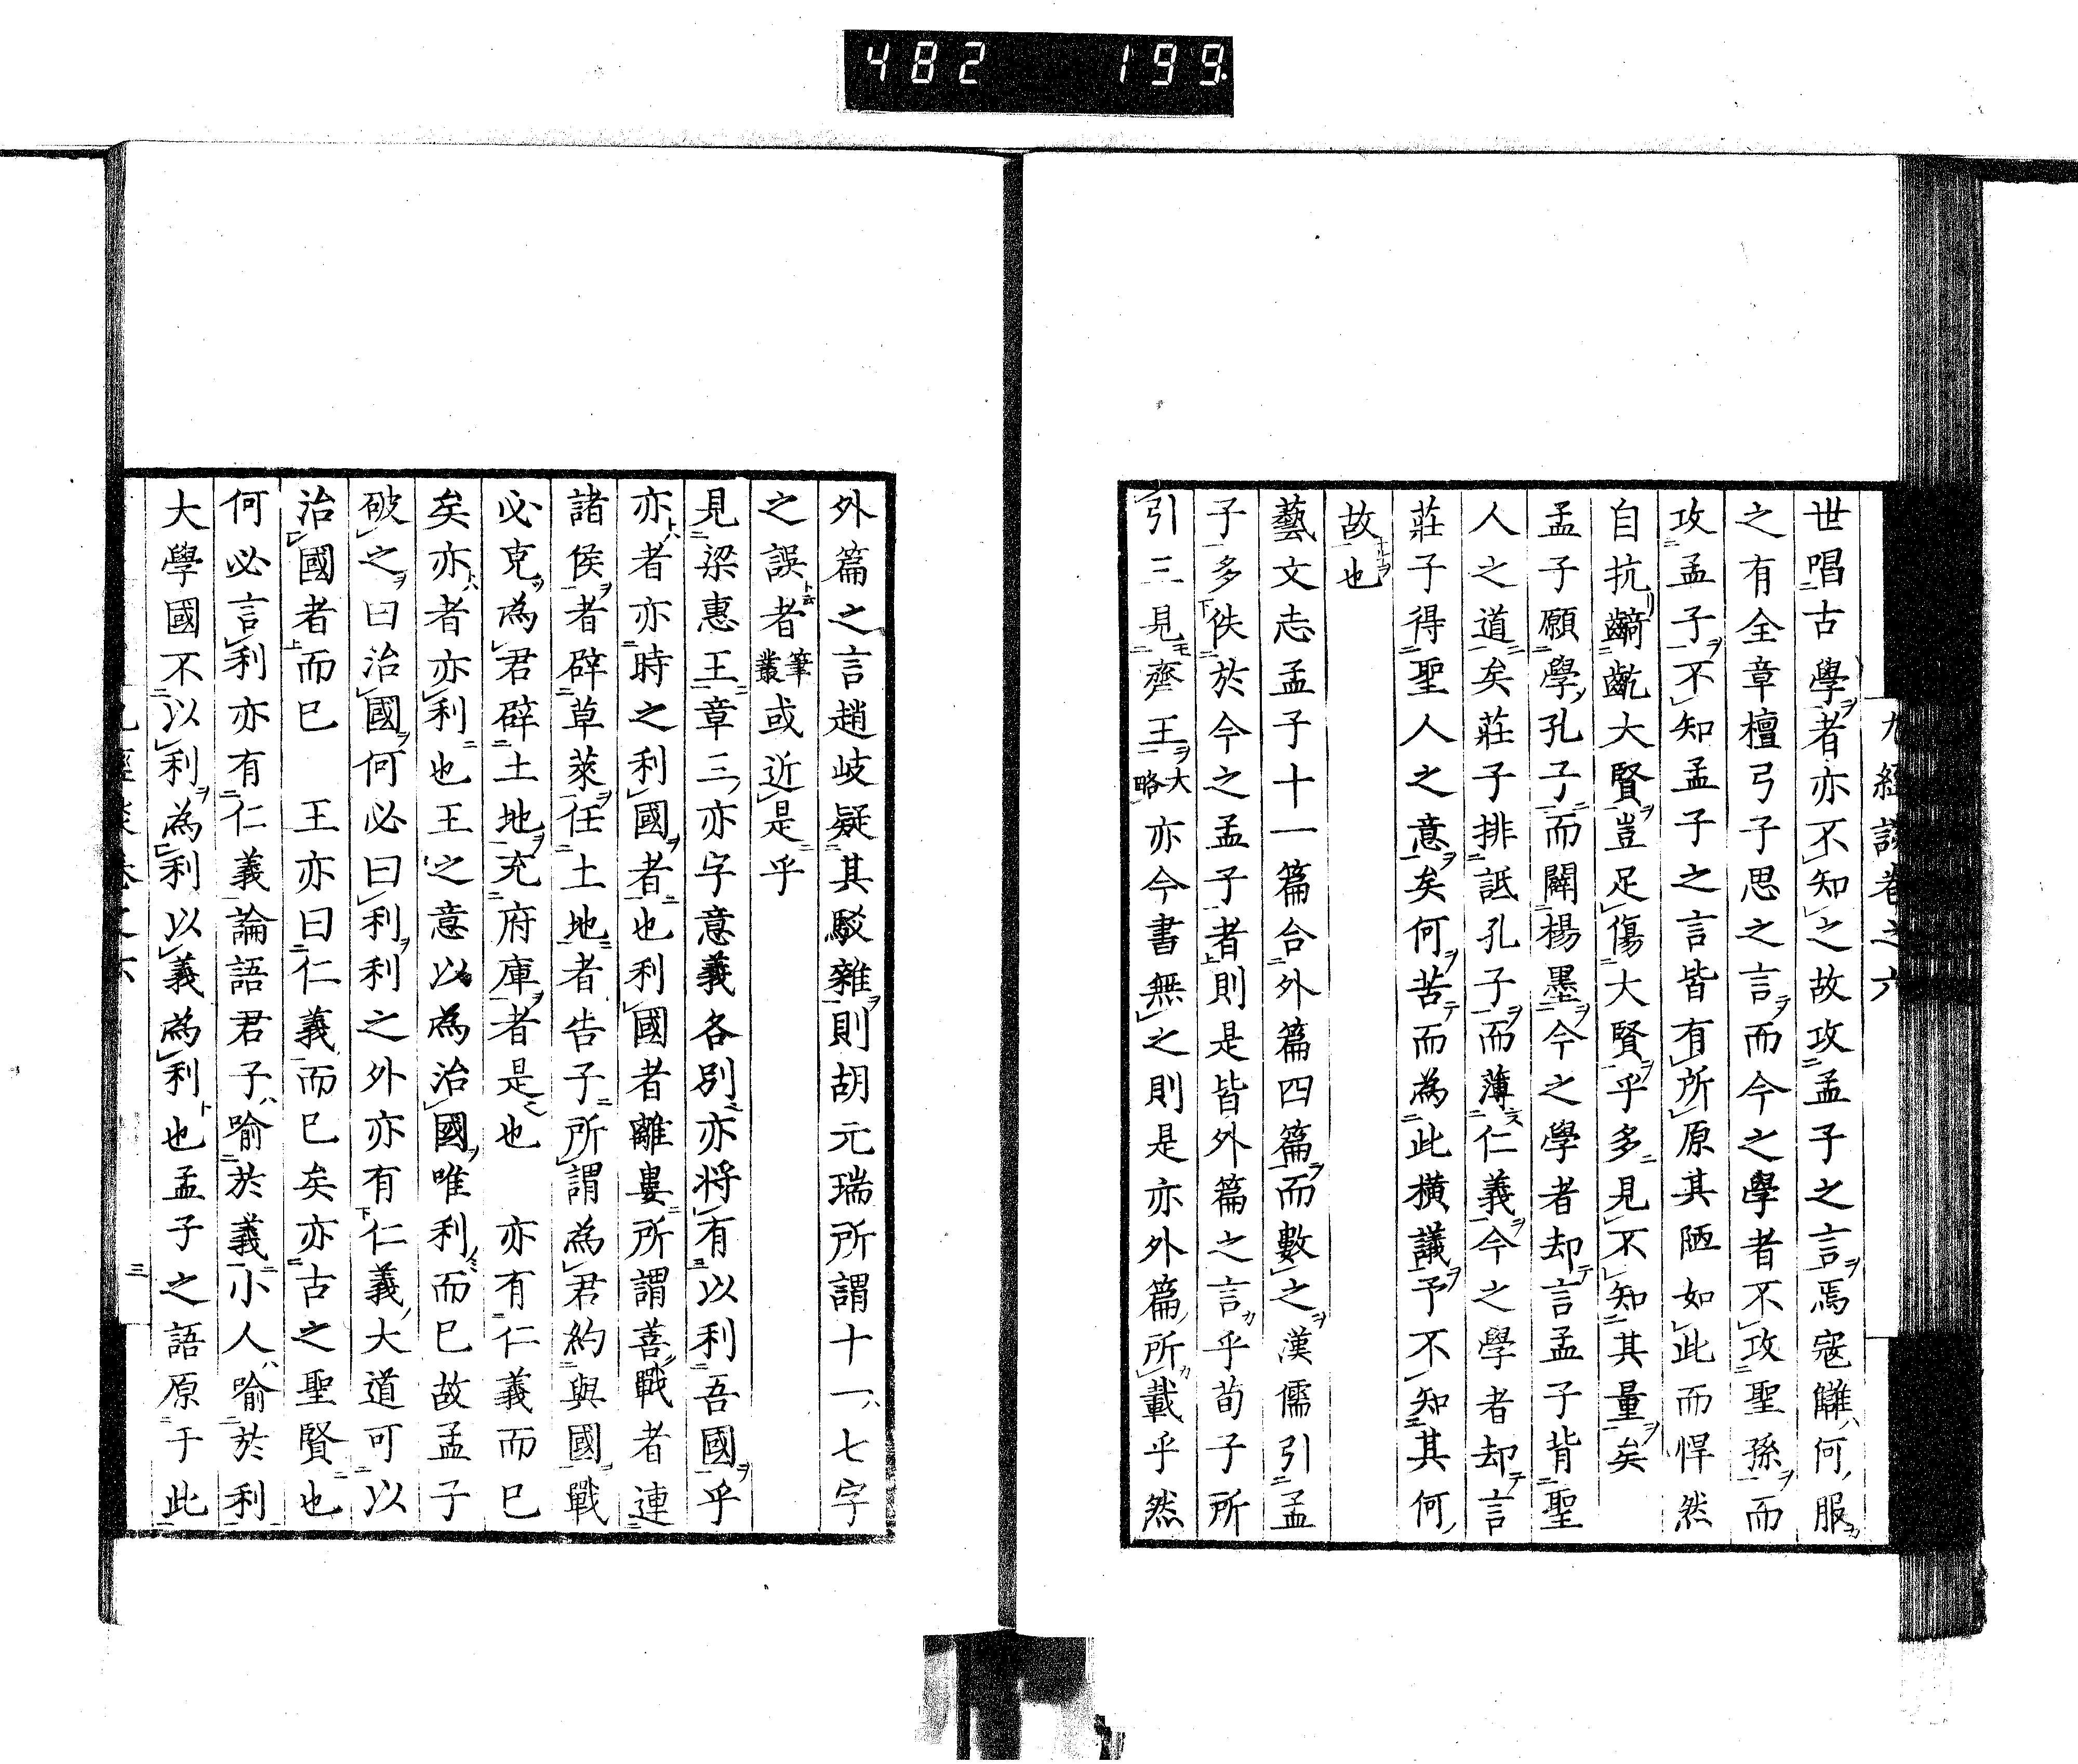 482 199
九經談卷之六
世唱古學者亦不知之故攻孟子之言焉寇讎何服
之有全章檀弓子思之言而今之學者不攻聖孫而
攻孟子不知孟子之言皆有所原其陋如此而悍然
自抗齮齕大賢豈足傷大賢乎多見不知其量矣
孟子願學孔子而闢楊墨今之學者却言孟子背聖
人之道矣莊子排詆孔子而薄仁義今之學者却言
莊子得聖人之意矣何苦而為此橫議予不知其何
故也
藝文志孟子十一篇合外篇四篇而數之漢儒引孟
子多佚於今之孟子者則是皆外篇之言乎荀子所
引三見齊王大略亦今書無之則是亦外篇所載乎然
外篇之言趙歧疑其駁雜則胡元瑞所謂十一七字
之誤者筆叢或近是乎
見梁惠王章三亦字意義各別亦將有以利吾國乎
亦者亦時之利國者也利國者離婁所謂善戰者連
諸侯者辟草萊任土地者告子所謂為君約與國戰
必克為君辟土地充府庫者是也　亦有仁義而已
矣亦者亦利也王之意以為治國唯利而已故孟子
破之曰治國何必曰利利之外亦有仁義大道可以
治國者而已　王亦曰仁義而已矣亦古之聖賢也
何必言利亦有仁義論語君子喻於義小人喻於利
大學國不以利為利以義為利也孟子之語原于此
九經談卷之六 三